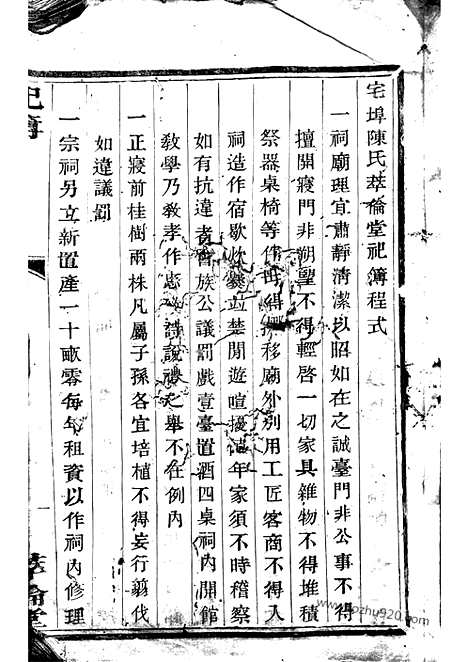 宅埠陳氏萃倫堂祀簿程式
一祠廟理宜肅靜清潔以昭如在之誠臺門非公事不得
擅開寢門非朔望不得輕啓一切家具雜物不得堆積
祭器桌椅等件毋得挪移廟外別用工匠客商不得入
祠造作宿歇炊爨並禁閒遊喧擾值年家須不時稽察
如有抗違者合族公議罰戲壹臺置酒四桌祠內開館
教學乃教孝作忠詩說禮之舉不在例內
一正寢前桂樹兩株凡屬子孫各宜培植不得妄行翦伐
如違議罰
一宗祠另立新置產一十畝零每年租資以作祠內修理
祀簿
一
萃倫堂